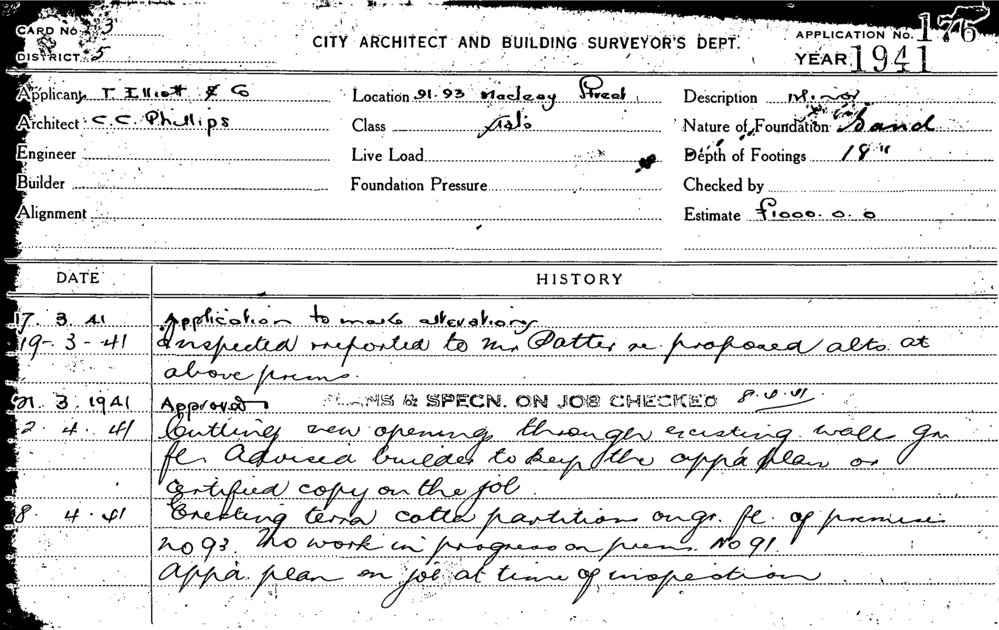 CARD No 3
DISTRICT 5
CITY ARCHITECT AND BUILDING SURVEYOR'S DEPT.
APPLICATION No. 176
YEAR 1941
Applicant T. Elliott & Co
Location 91.93 Macleay Street
Description Minor
Architect C.C. Phillips
Class Flats
Nature of Foundation Sand
Engineer
Live Load
Depth of Footings 18"
Builder
Foundation Pressure
Checked by
Alignment
Estimate £1000.0.0
DATE HISTORY
17. 3. 41 Application to make alterations
19-3-41 Inspected & reported to Mr Potter re proposed alts. at
above prems.
21. 3. 1941 Approved PLANS & SPECN. ON JOB CHECKED 8.4.41.
2. 4. 41 Cutting new opening through existing walls gr.
fl. Advised builder to keep the app'd plan or
certified copy on the job.
8. 4. 41 Erecting terra cotta partitions on gr. fl. of premises
No 93. No work in progress on prems. No 91.
App'd. plan on job at time of inspection